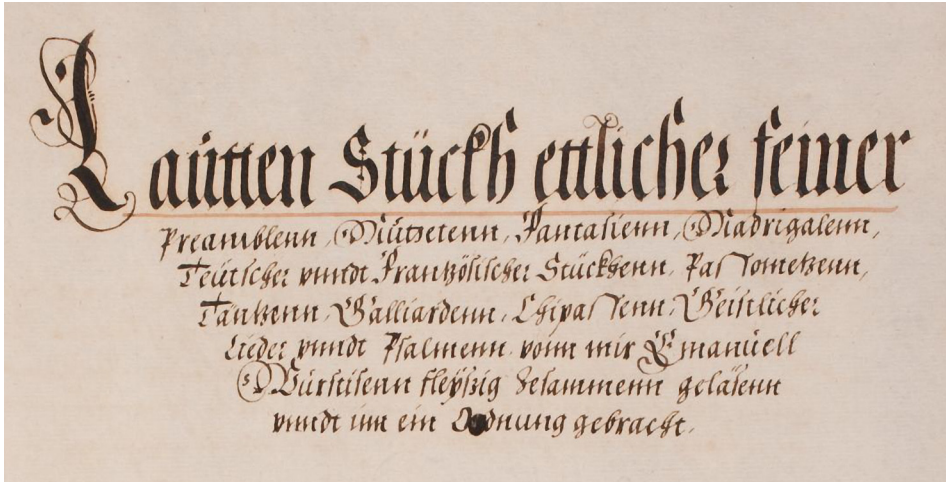 Lautten Stückh ettlicher feiner
Preamblenn, Mutzetenn, Fantasienn, Madrigalenn,
Teütscher vnndt Frantzösischer Stückhenn, Passometzenn,
Täntzenn, Galliardenn, Chipassenn, Geistlicher
Lieder vnndt Psalmenn, vonn mir Emanüell
Wurstisenn fleyßig Zesammenn geläsenn
vnndt inn ein Ordnung gebracht.